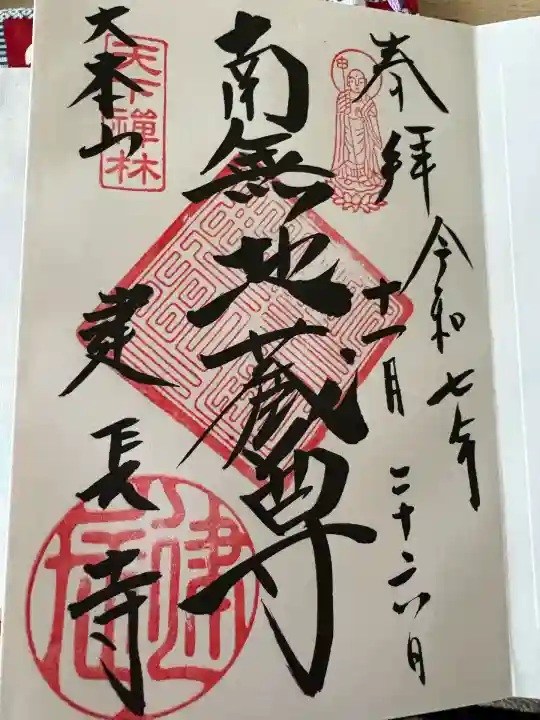 奉拝
令和七年
十一月
二十六日
南無地蔵尊
天下禅林
大本山
建長寺
建長